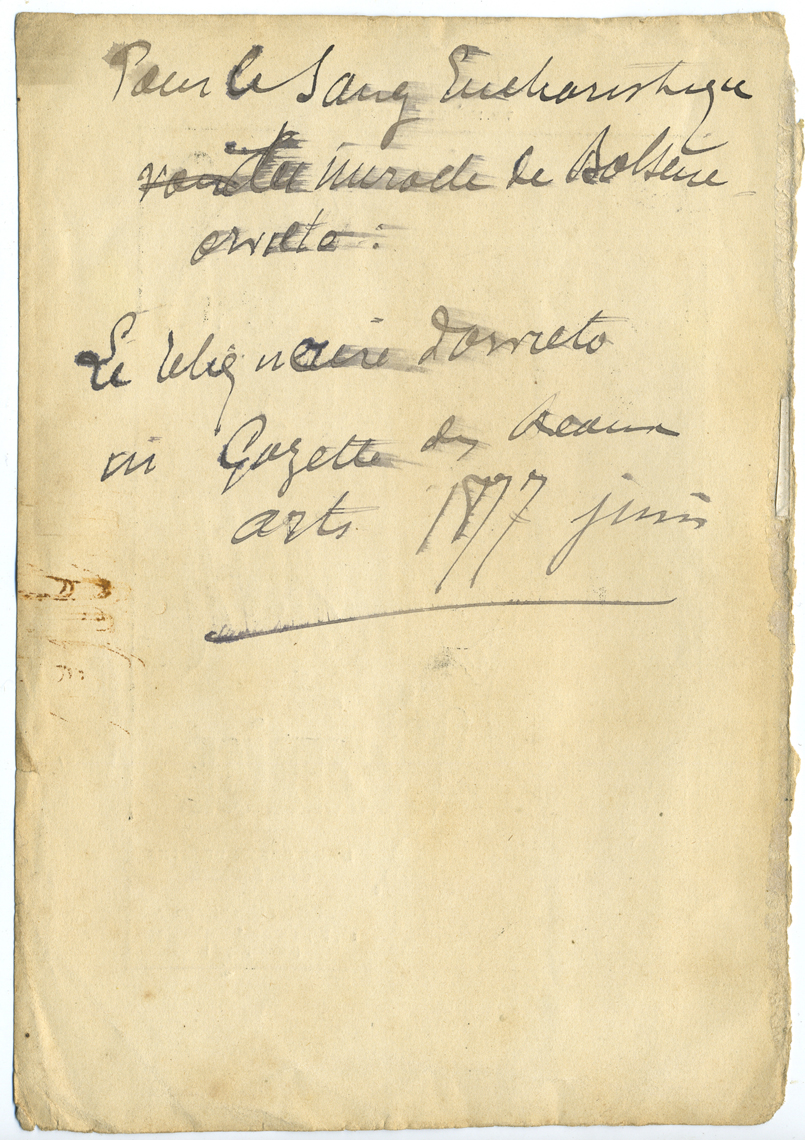 Pour le Sang Eucharistique
miracle de Bolsène
orvieto :
Le reliquaire d'orvieto
in Gazette des beaux
arts 1877 juin